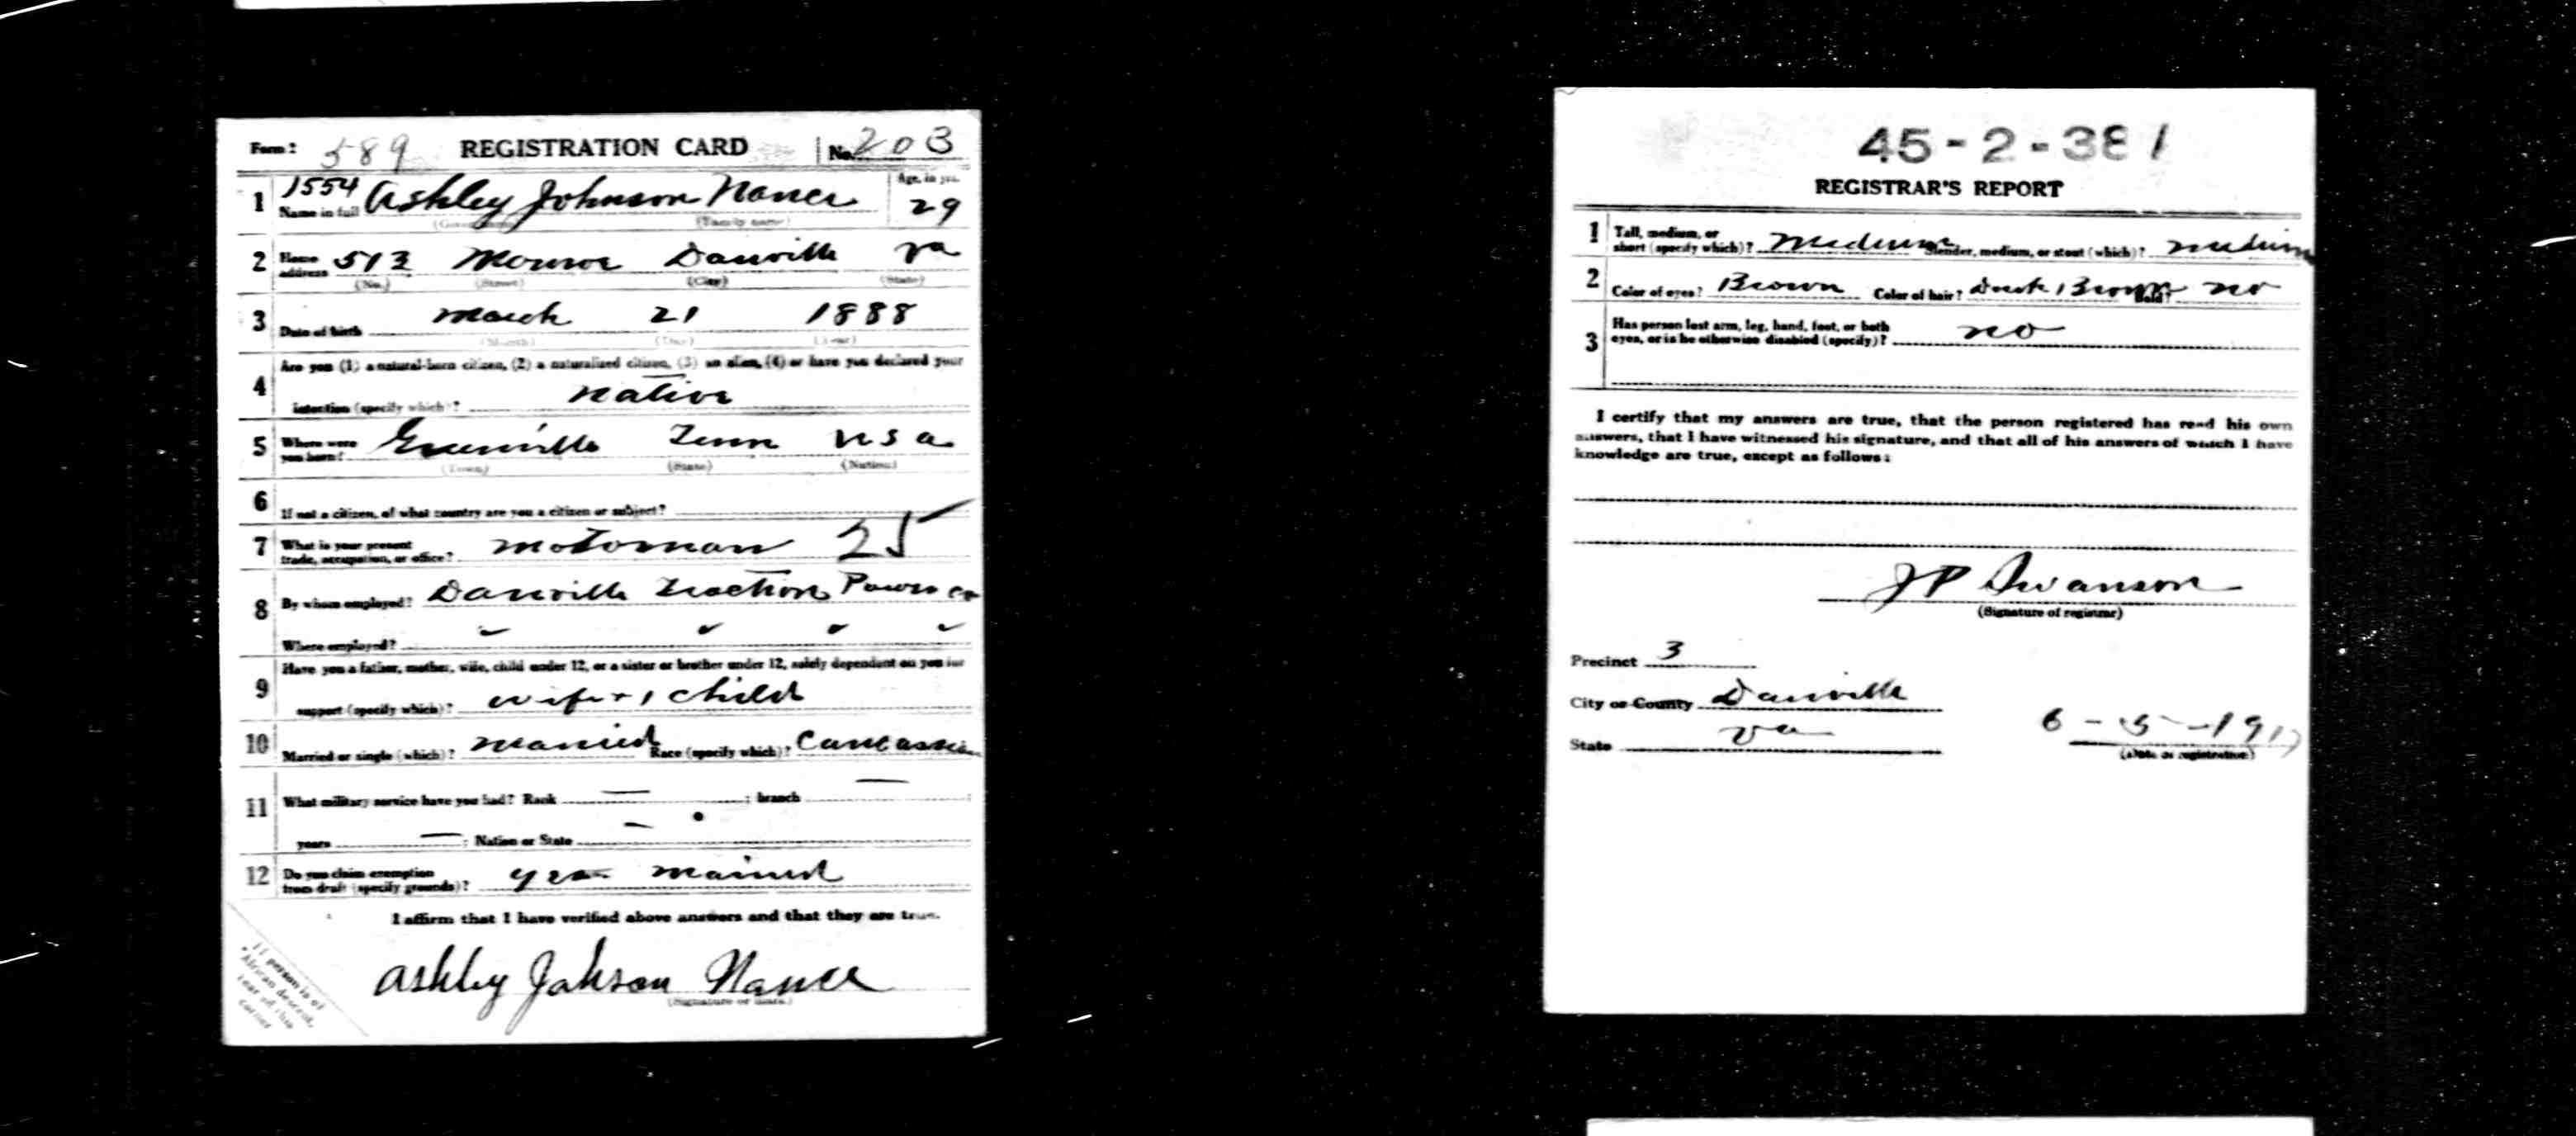 Form 1 589 REGISTRATION CARD No. 203
1554 Age, in yrs.
1 Name in full Ashley Johnson Nance 29
(Given name) (Family name)
2 Home address 513 Monroe Danville Va
(No.) (Street) (City) (State)
3 Date of birth March 21 1888
(Month) (Day) (Year)
Are you (1) a natural-born citizen, (2) a naturalized citizen, (3) an alien, (4) or have you declared your
4 intention (specify which)? native
5 Where were you born? Greenville Tenn USA
(Town) (State) (Nation)
6 If not a citizen, of what country are you a citizen or subject?
7 What is your present trade, occupation, or office? motorman 25
8 By whom employed? Danville Traction Power Co
Where employed?
Have you a father, mother, wife, child under 12, or a sister or brother under 12, solely dependent on you for
9 support (specify which)? wife + 1 child
10 Married or single (which)? married Race (specify which)? Caucassian
11 What military service have you had? Rank — ; branch —
years — ; Nation or State —
12 Do you claim exemption from draft (specify grounds)? yes married
I affirm that I have verified above answers and that they are true.
Ashley Johson Nance
(Signature or mark)
If person is of
African descent,
tear off this
corner
45-2-381
REGISTRAR'S REPORT
1 Tall, medium, or short (specify which)? Medium Slender, medium, or stout (which)? medium
2 Color of eyes? Brown Color of hair? Dark Brown Bald? no
3 Has person lost arm, leg, hand, foot, or both eyes, or is he otherwise disabled (specify)? no
I certify that my answers are true, that the person registered has read his own
answers, that I have witnessed his signature, and that all of his answers of which I have
knowledge are true, except as follows:
JP Swanson
(Signature of registrar)
Precinct 3
City or County Danville
State Va 6-5-1917
(Date of registration)